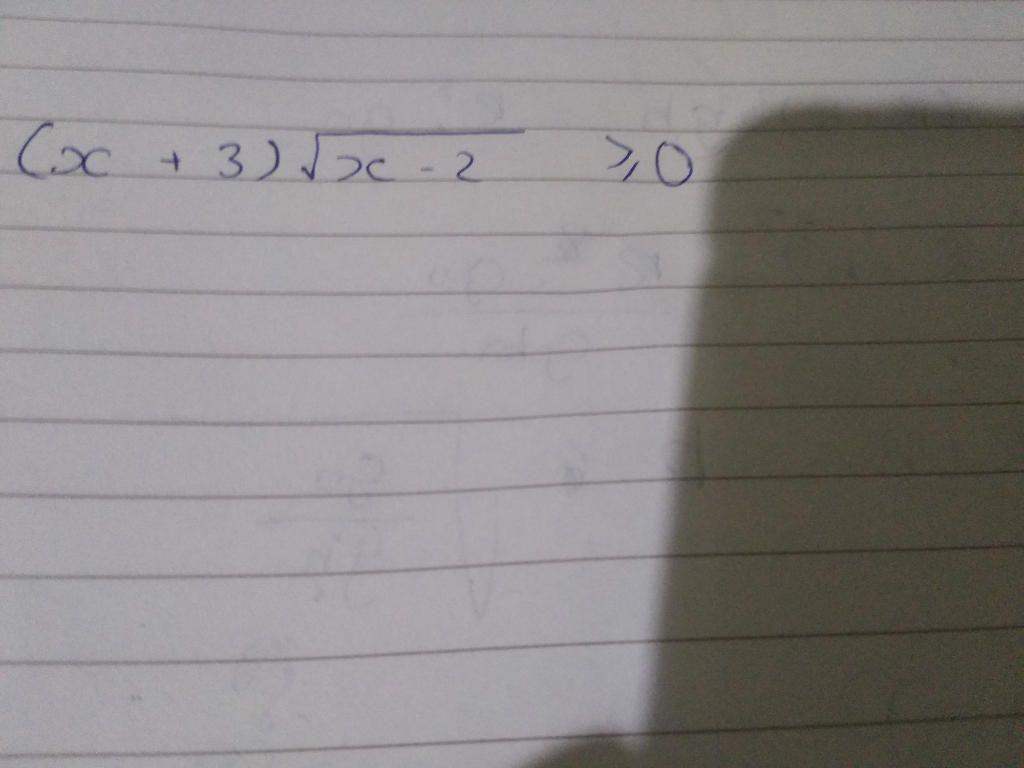 (x + 3)√x - 2 ⩾ 0